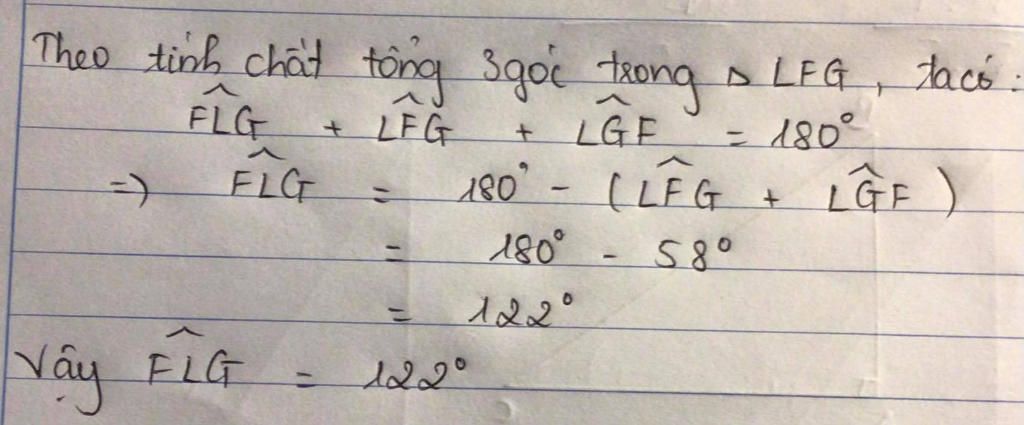 Theo tính chất tổng 3 góc trong △ LFG, ta có:
FLG + LFG + LGF = 180°
=> FLG = 180° - (LFG + LGF)
= 180° - 58°
= 122°
Vậy FLG = 122°